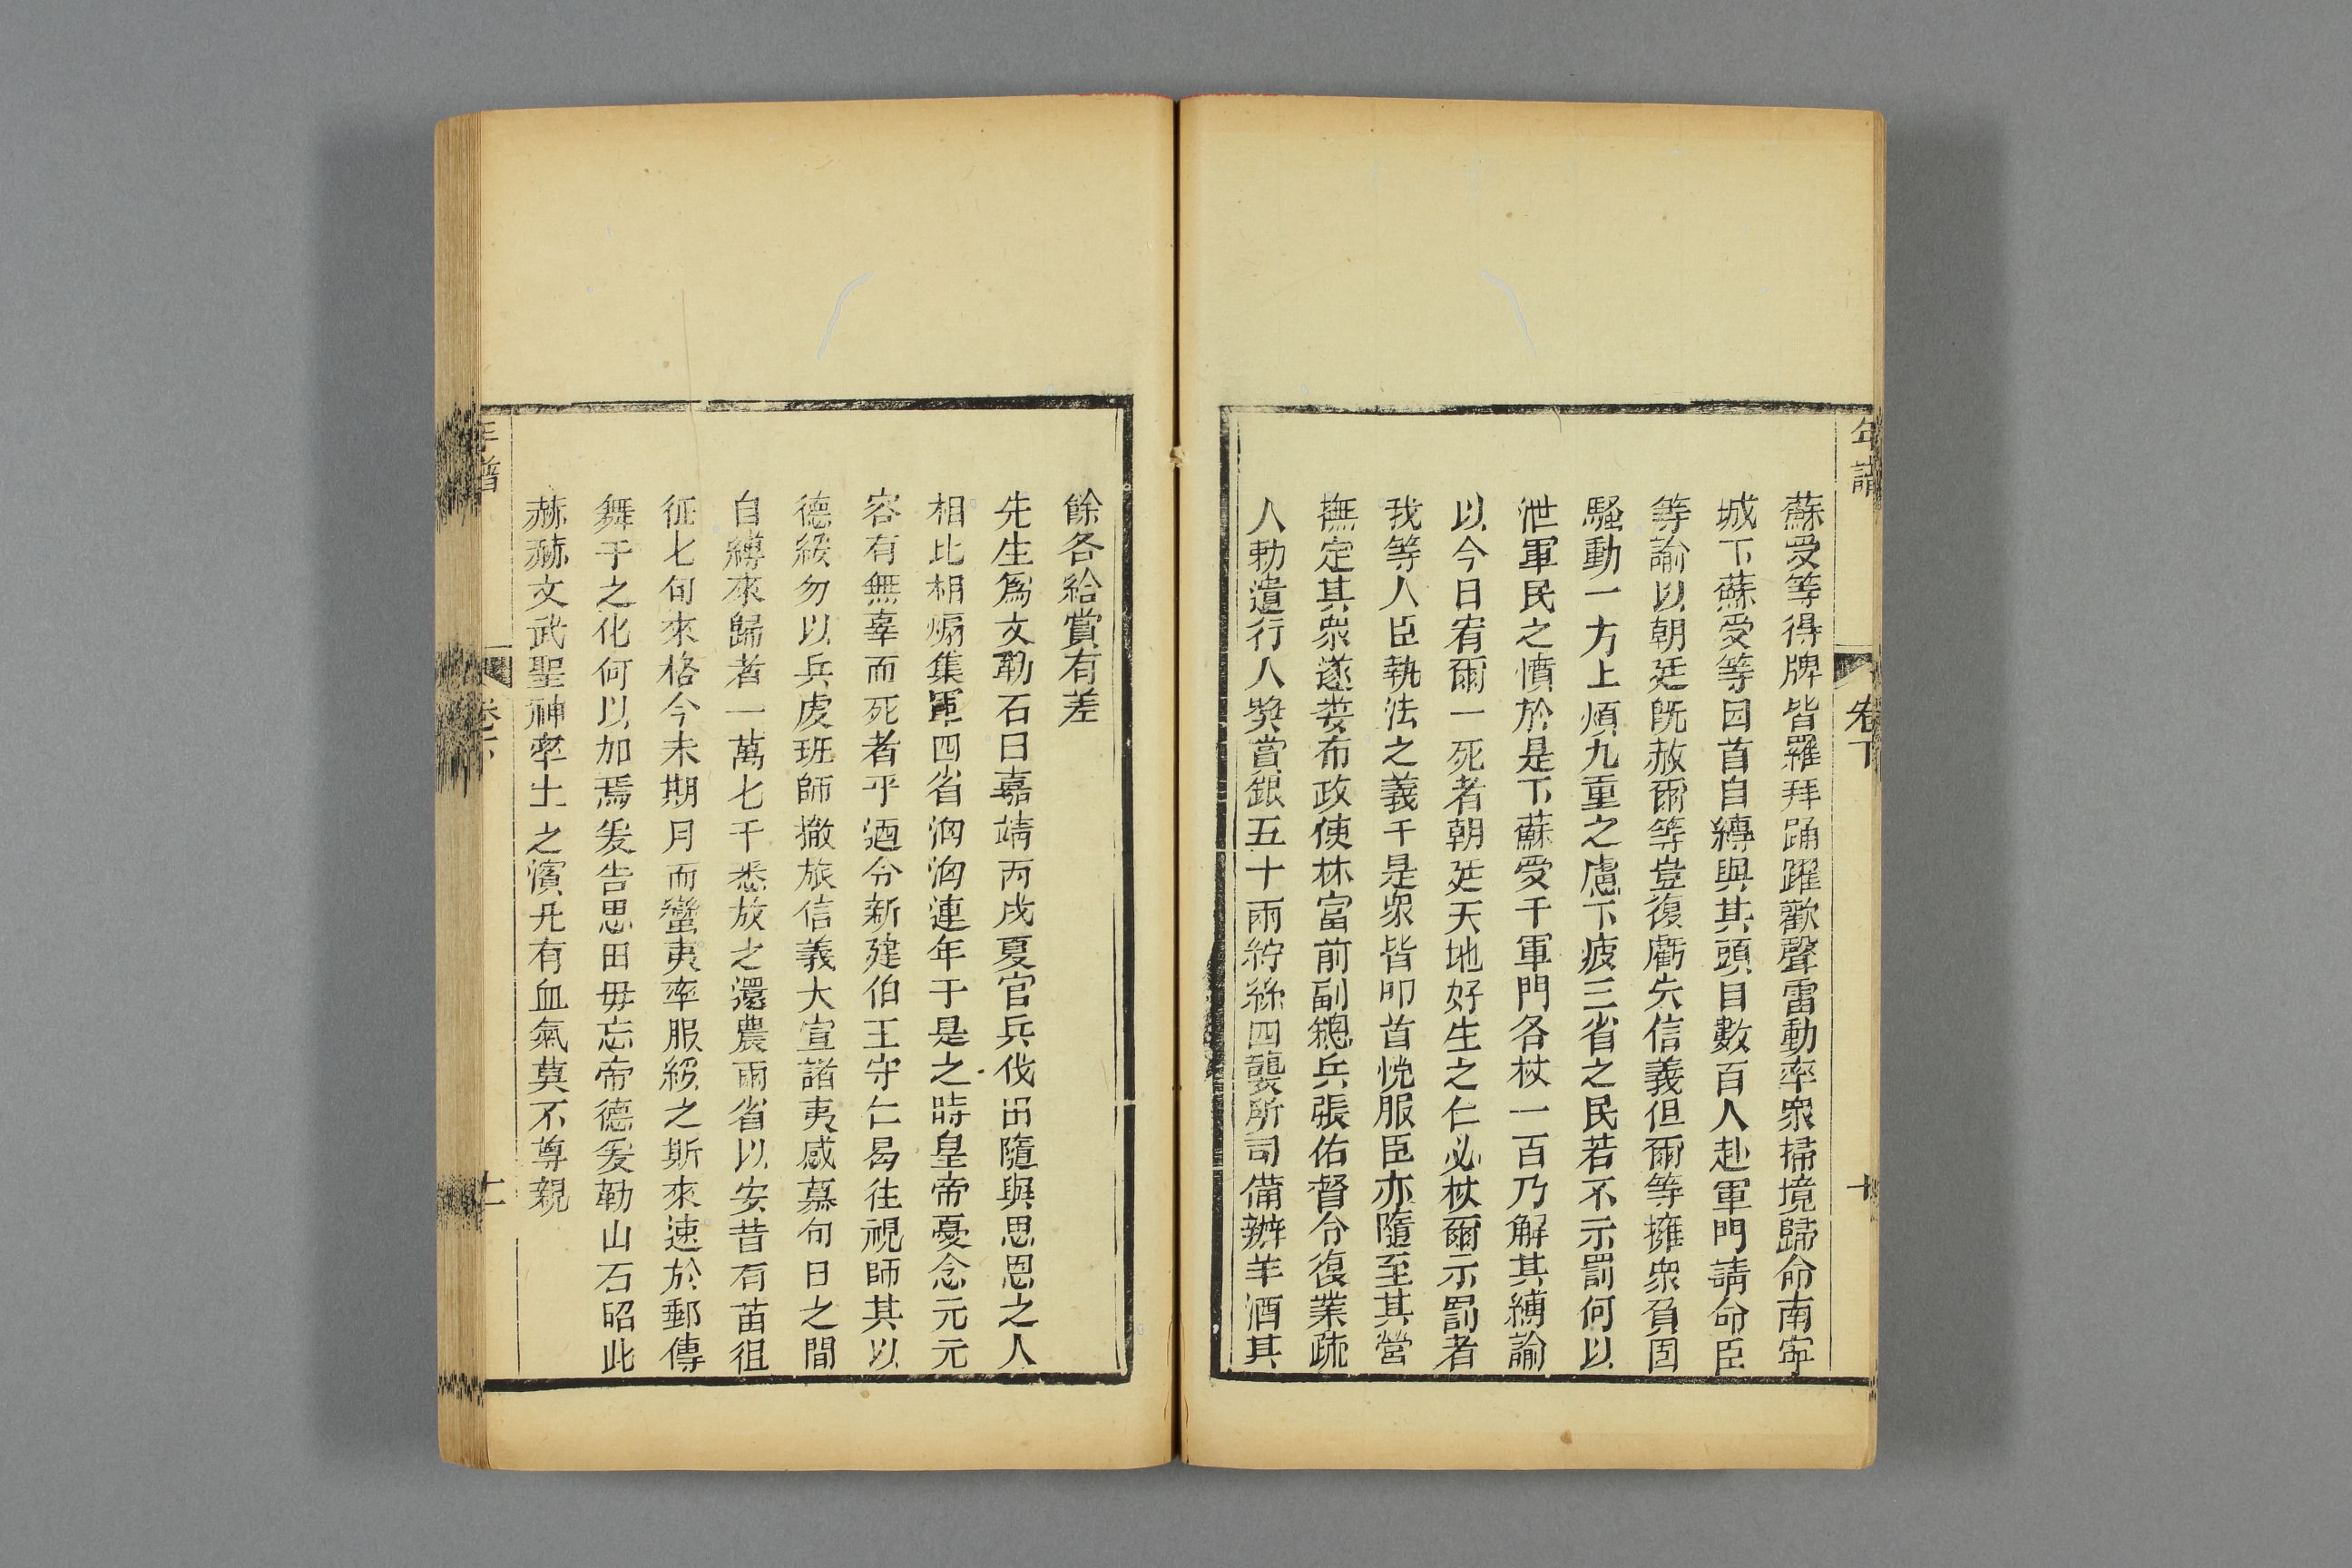 年譜
卷下
十
蘇受等得牌皆羅拜踊躍歡聲雷動率衆掃境歸命南寧
城下蘇受等囚首自縛與其頭目數百人赴軍門請命臣
等諭以朝廷旣赦爾等豈復虧失信義但爾等擁衆負固
騷動一方上煩九重之慮下疲三省之民若不示罰何以
泄軍民之憤於是下蘇受于軍門各杖一百乃解其縛諭
以今日宥爾一死者朝廷天地好生之仁必杖爾示罰者
我等人臣執法之義于是衆皆叩首悅服臣亦隨至其營
撫定其衆遂委布政使林富前副總兵張佑督令復業疏
人勅遣行人奬賞銀五十兩紵絲四襲所司備辦羊酒其
餘各給賞有差
先生爲文勒石曰嘉靖丙戌夏官兵伐田隨與思恩之人
相比相煽集軍四省洶洶連年于是之時皇帝憂念元元
容有無辜而死者乎迺令新建伯王守仁曷往視師其以
德綏勿以兵虔班師撤旅信義大宣諸夷感慕旬日之間
自縛來歸者一萬七千悉放之還農兩省以安昔有苗徂
征七旬來格今未期月而蠻夷率服綏之斯來速於郵傳
舞干之化何以加焉爰告思田毋忘帝德爰勒山石昭此
赫赫文武聖神率土之濱凡有血氣莫不尊親
年譜
卷下
十一